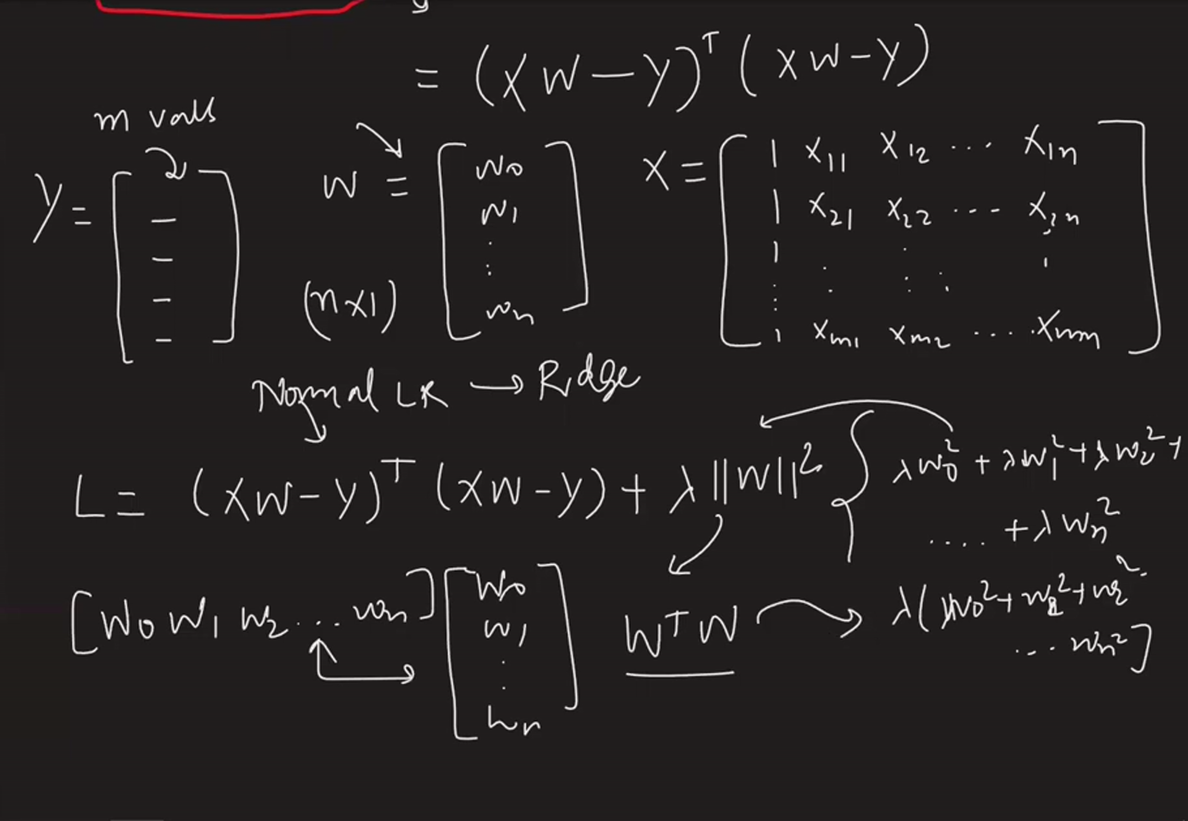 = (XW-Y)^T (XW-Y)
m vals
Y = [ – – – – ]
W = [ w0 w1 : : wn ]
(n×1)
X = [ 1 x11 x12 ... x1n
1 x21 x22 ... x2n
1 . . . .
: . . . .
1 xm1 xm2 ..... xmn ]
Normal LR → Ridge
L = (XW-Y)^T (XW-Y) + λ ||W||^2 { λw0^2 + λw1^2 + λw2^2 +
.... + λwn^2
[W0 W1 W2 ... wn] [ W0 W1 . . wn ]
W^T W → λ(w0^2 + w1^2 + w2^2
... wn^2]